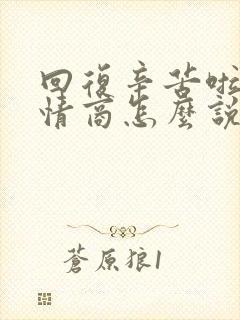 回復辛苦啦
情商怎麼說
蒼原狼1